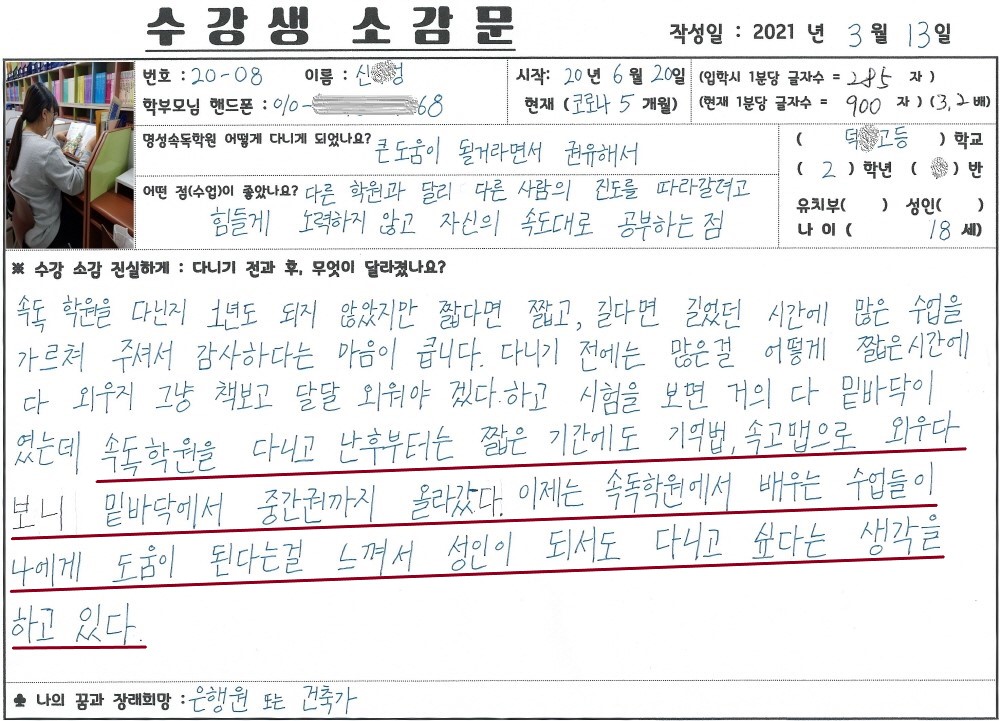 수강생 소감문
작성일 : 2021 년 3월 13일
번호 : 20-08 이름 : 신 정
시작: 20년 6월 20일
(입학시 1분당 글자수 = 285 자 )
학부모님 핸드폰 : 010- 68
현재 (코로나 5 개월)
(현재 1분당 글자수 = 900 자 ) (3,2배)
명성속독학원 어떻게 다니게 되었나요? 큰 도움이 될거라면서 권유해서
( 덕 고등 ) 학교
( 2 ) 학년 ( ) 반
유치부( ) 성인( )
나 이 ( 18 세)
어떤 점(수업)이 좋았나요? 다른 학원과 달리 다른 사람의 진도를 따라갈려고
힘들게 노력하지 않고 자신의 속도대로 공부하는 점
※ 수강 소감 진실하게 : 다니기 전과 후, 무엇이 달라졌나요?
속독 학원을 다닌지 1년도 되지 않았지만 짧다면 짧고, 길다면 길었던 시간에 많은 수업을
가르쳐 주셔서 감사하다는 마음이 큽니다. 다니기 전에는 많은걸 어떻게 짧은시간에
다 외우지 그냥 책보고 달달 외워야 겠다.하고 시험을 보면 거의 다 밑바닥이
였는데 속독학원을 다니고 난후부터는 짧은 기간에도 기억법,속고맵으로 외우다
보니 밑바닥에서 중간권까지 올라갔다. 이제는 속독학원에서 배우는 수업들이
나에게 도움이 된다는걸 느껴서 성인이 되서도 다니고 싶다는 생각을
하고 있다.
♣ 나의 꿈과 장래희망 : 은행원 또는 건축가